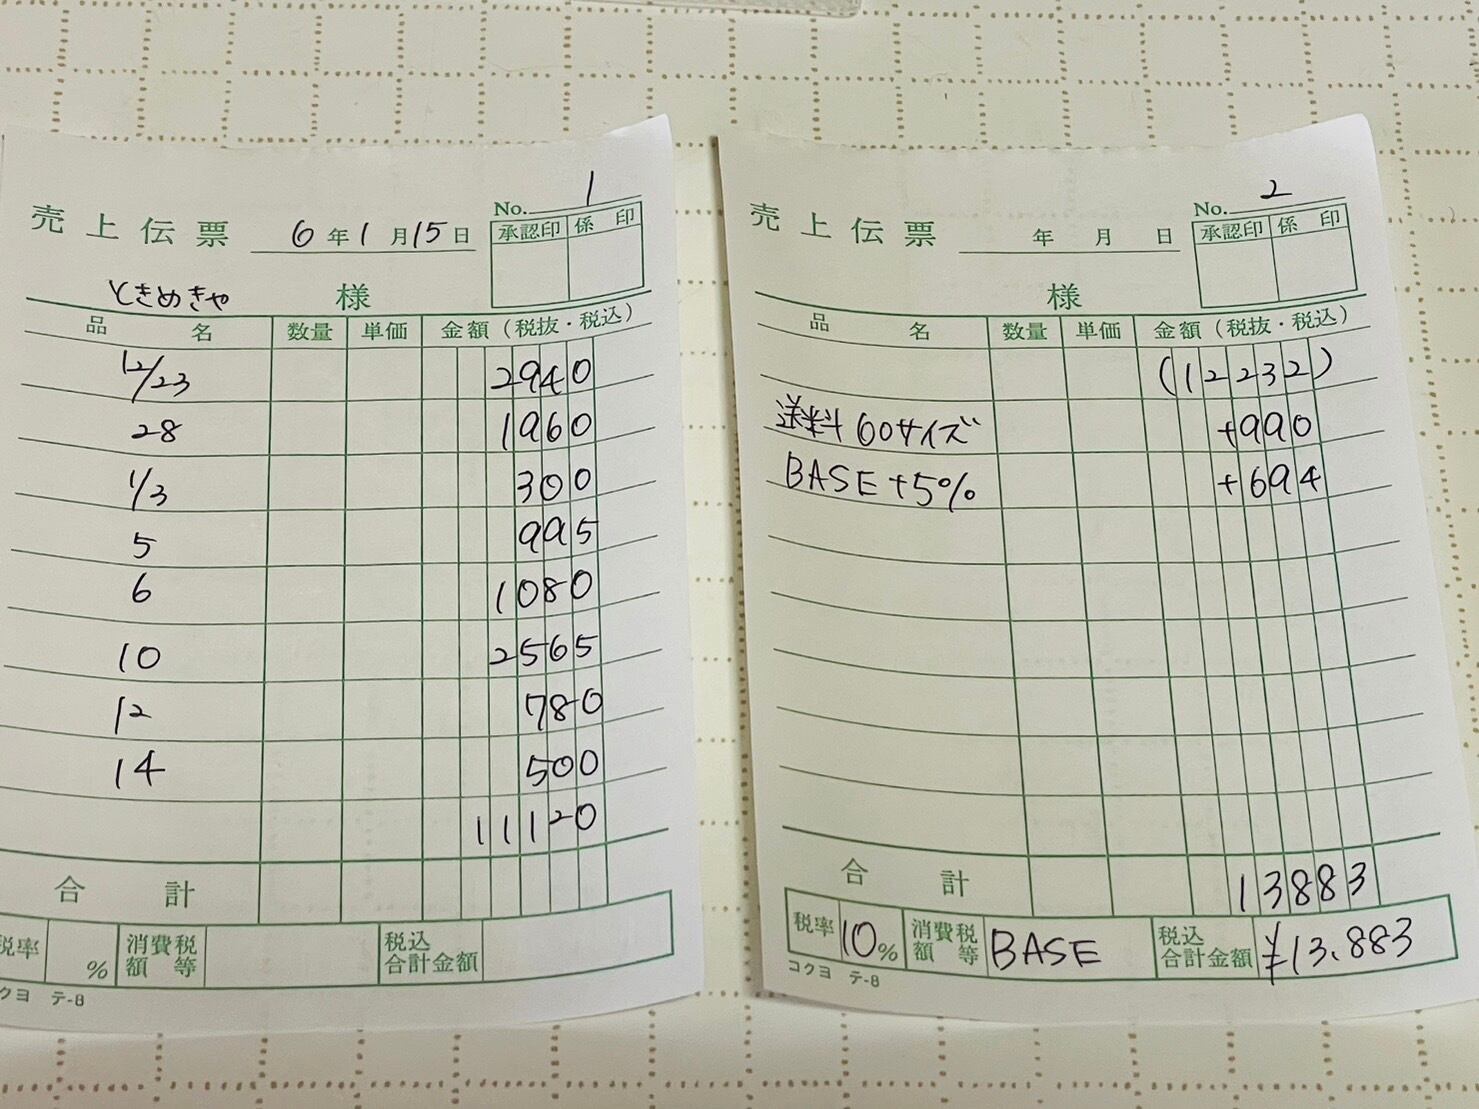 No. 1
売上伝票 6年1月15日
承認印 係印
ときめきや 様
品名 数量 単価 金額（税抜・税込）
12/23 2940
28 1960
1/3 300
5 995
6 1080
10 2565
12 780
14 500
11120
合計
税率 % 消費税額等 税込合計金額
クヨ テ-8
No. 2
売上伝票 年 月 日
承認印 係印
様
品名 数量 単価 金額（税抜・税込）
(12232)
送料60サイズ +990
BASE+5% +694
合計 13883
税率 10% 消費税額等 BASE 税込合計金額 ¥13.883
コクヨ テ-8